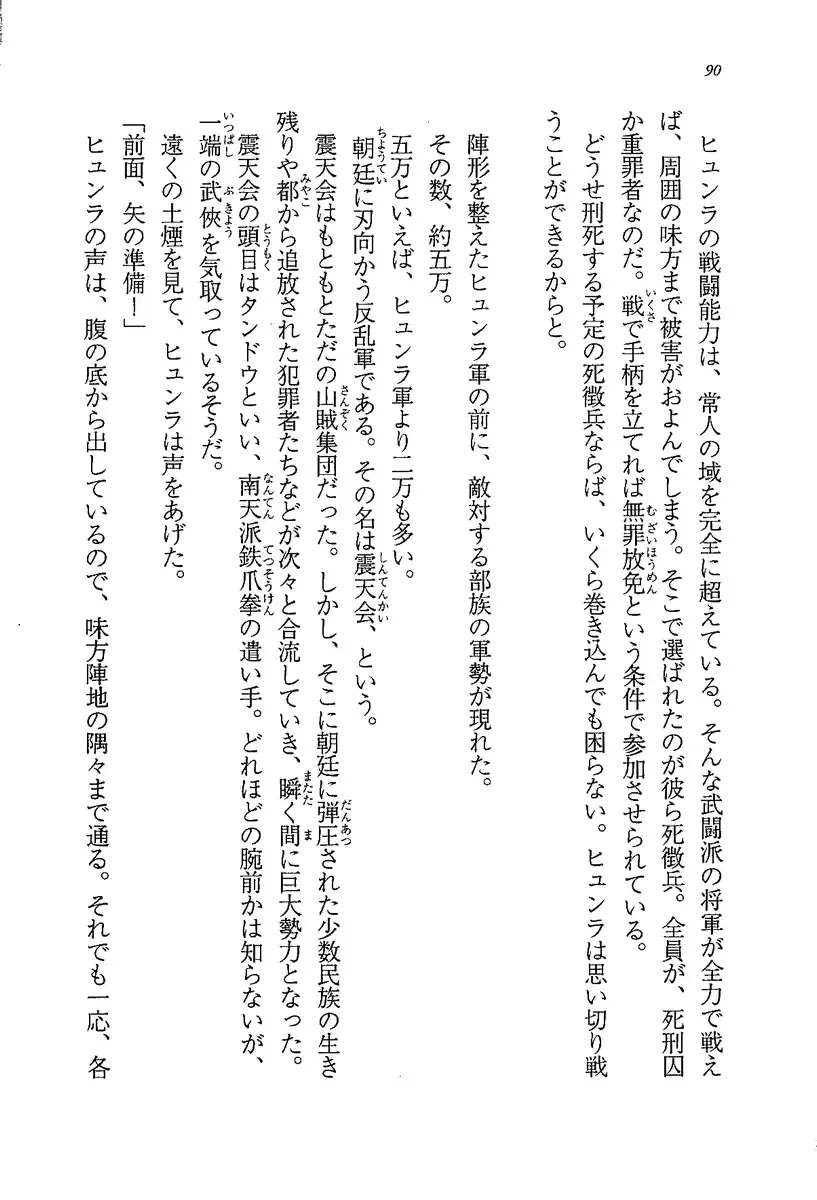 90
ヒュンラの戦闘能力は、常人の域を完全に超えている。そんな武闘派の将軍が全力で戦え
ば、周囲の味方まで被害がおよんでしまう。そこで選ばれたのが彼ら死徴兵。全員が、死刑囚
か重罪者なのだ。戦で手柄を立てれば無罪放免という条件で参加させられている。
どうせ刑死する予定の死徴兵ならば、いくら巻き込んでも困らない。ヒュンラは思い切り戦
うことができるからと。
陣形を整えたヒュンラ軍の前に、敵対する部族の軍勢が現れた。
その数、約五万。
五万といえば、ヒュンラ軍より二万も多い。
朝廷に刃向かう反乱軍である。その名は震天会、という。
震天会はもともとただの山賊集団だった。しかし、そこに朝廷に弾圧された少数民族の生き
残りや都から追放された犯罪者たちなどが次々と合流していき、瞬く間に巨大勢力となった。
震天会の頭目はタンドウといい、南天派鉄爪拳の遣い手。どれほどの腕前かは知らないが、
一端の武俠を気取っているそうだ。
遠くの土煙を見て、ヒュンラは声をあげた。
「前面、矢の準備！」
ヒュンラの声は、腹の底から出しているので、味方陣地の隅々まで通る。それでも一応、各